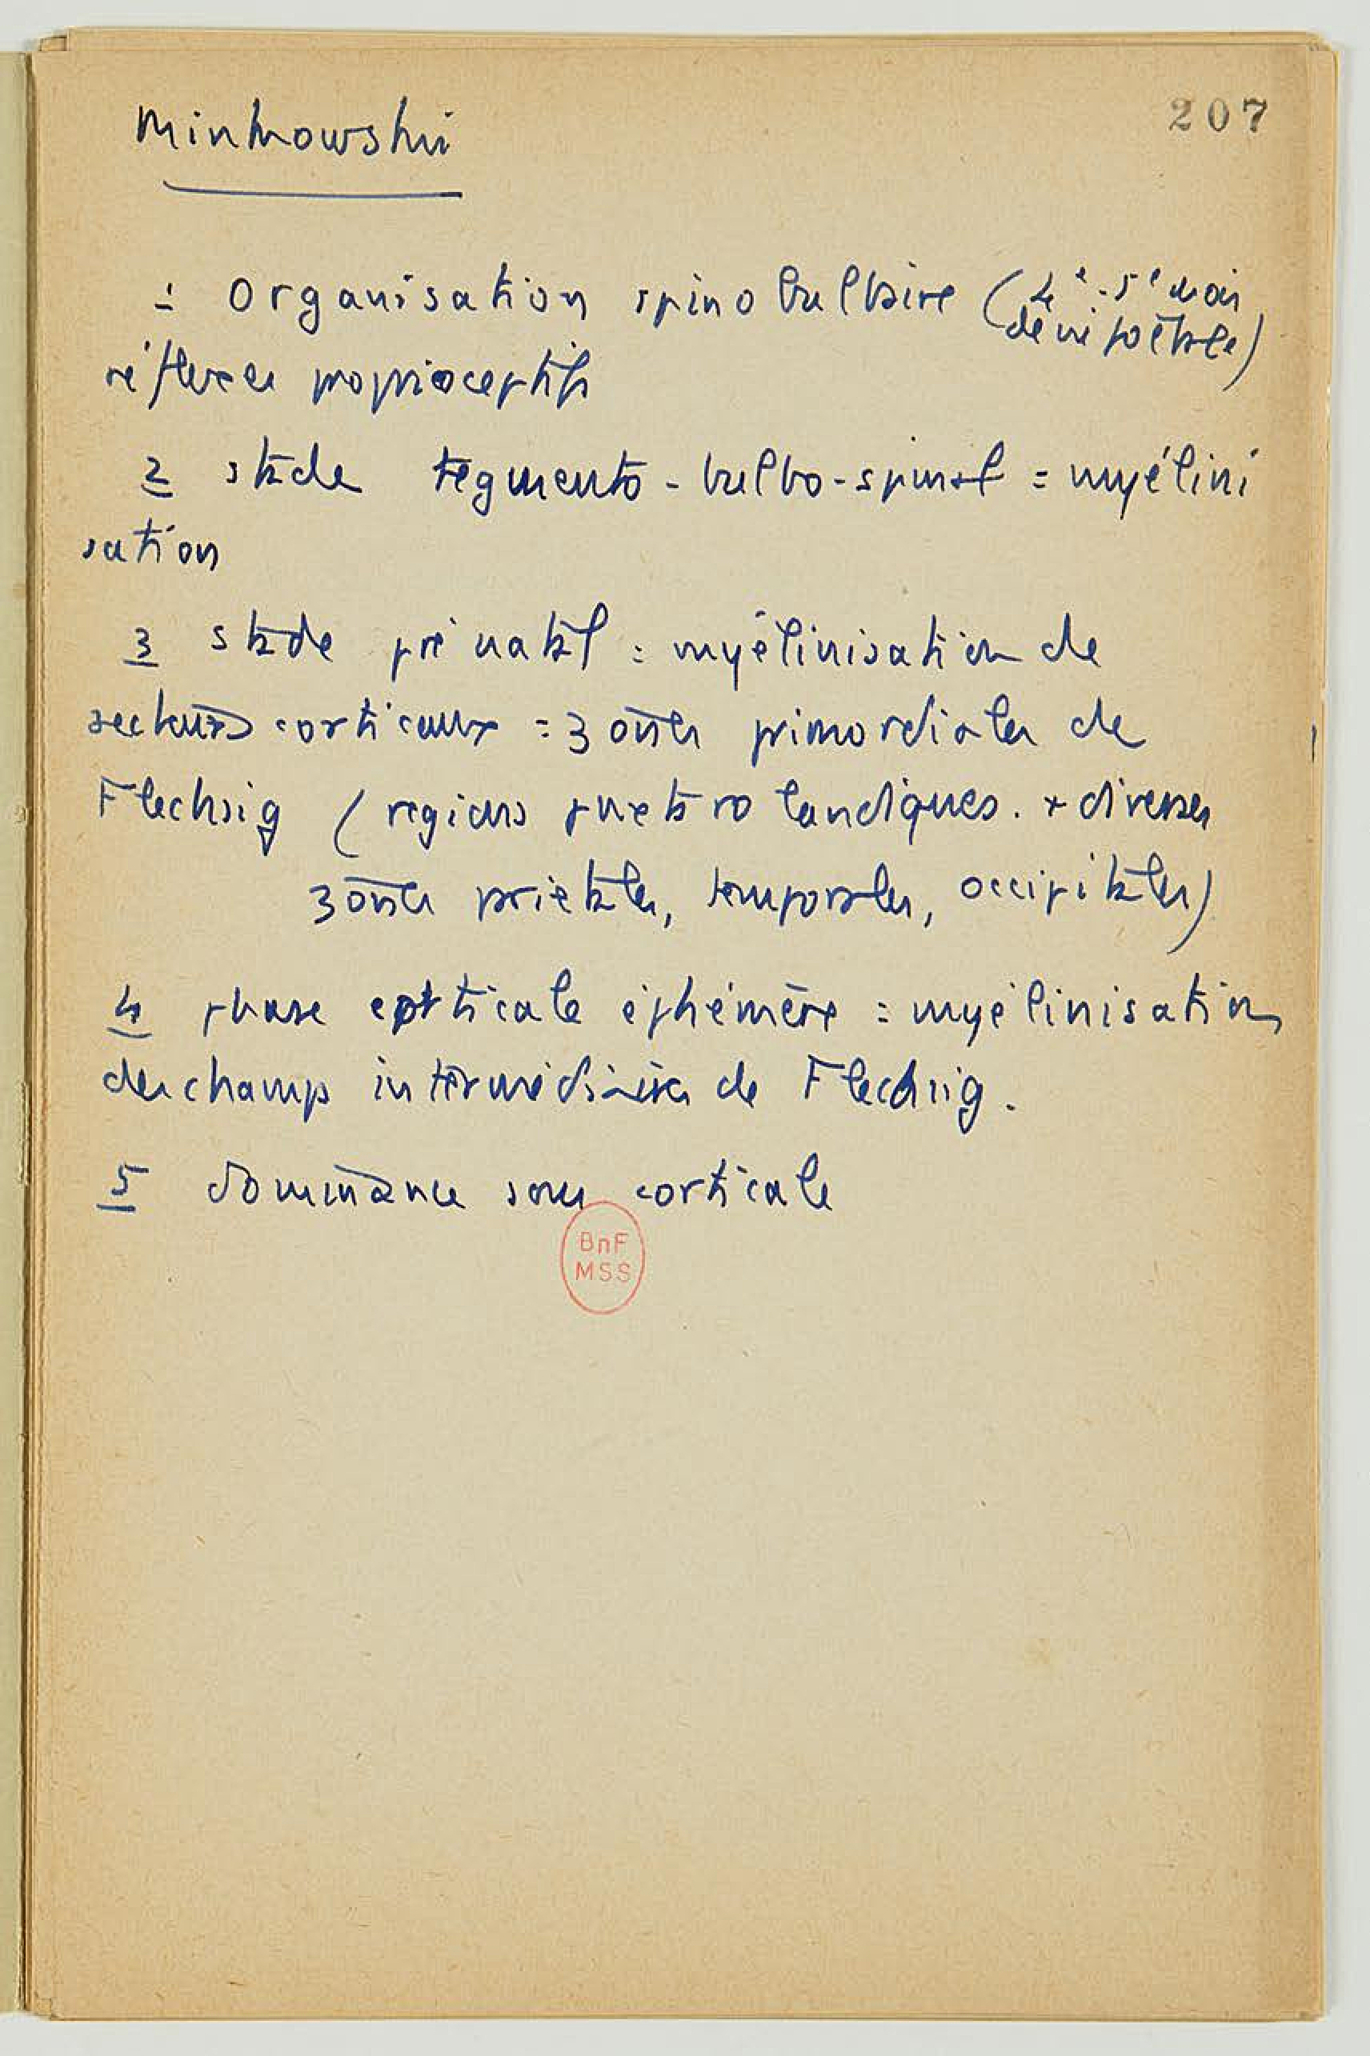 207
Minkowski
1 Organisation spino bulbaire (4e-5e mois
de vie foetale)
réflexes proprioceptifs
2 stade tegmento-bulbo-spinal = myélini
sation
3 stade prénatal : myélinisation de
secteurs corticaux = zones primordiales de
Flechsig (regions juxta rolandiques. + diverses
zones pariétales, temporales, occipitales)
4 phase corticale éphémère = myélinisation
des champs intermédiaires de Flechsig.
5 dominance sous corticale
BnF
MSS